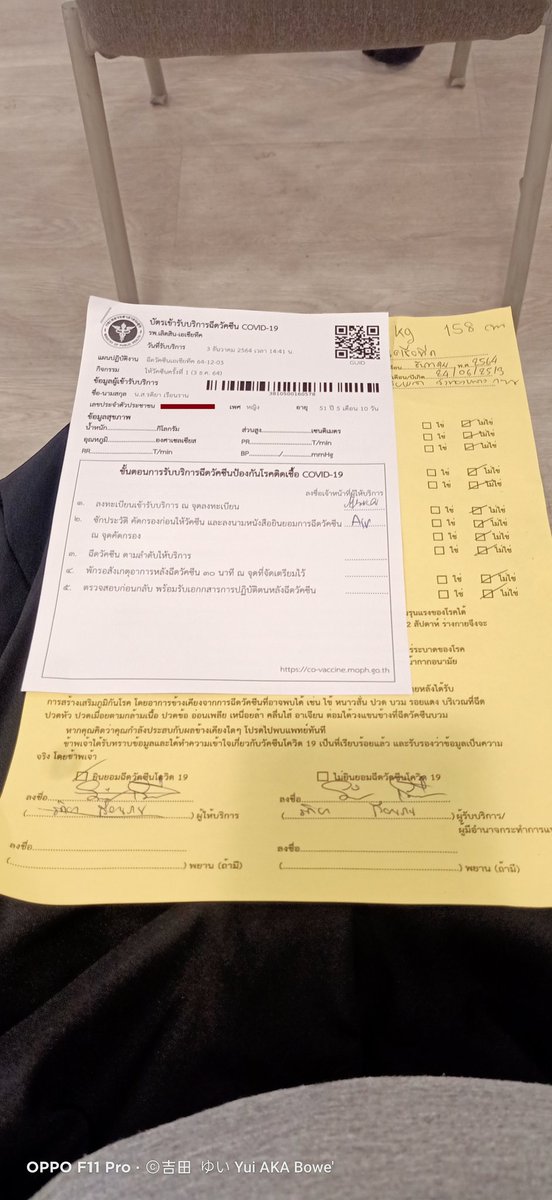 บัตรเข้ารับบริการฉีดวัคซีน COVID-19
รพ.เลิดสิน-เอเชียทีค
วันที่รับบริการ 3 ธันวาคม 2564 เวลา 14:41 น.
GUID
แผนปฏิบัติงาน ฉีดวัคซีนเอเชียทีค 64-12-03
กิจกรรม ให้วัคซีนครั้งที่ 1 (3 ธ.ค. 64)
ข้อมูลผู้เข้ารับบริการ
3810500160578
ชื่อ-นามสกุล น.ส.รติยา เรือนงาน
เลขประจำตัวประชาชน เพศ หญิง อายุ 51 ปี 5 เดือน 10 วัน
ข้อมูลสุขภาพ
น้ำหนัก กิโลกรัม ส่วนสูง เซนติเมตร
อุณหภูมิ องศาเซลเซียส PR T/min
RR T/min BP / mmHg
ขั้นตอนการรับบริการฉีดวัคซีนป้องกันโรคติดเชื้อ COVID-19
ลงชื่อเจ้าหน้าที่ผู้ให้บริการ
๑. ลงทะเบียนเข้ารับบริการ ณ จุดลงทะเบียน
๒. ซักประวัติ คัดกรองก่อนให้วัคซีน และลงนามหนังสือยินยอมการฉีดวัคซีน
ณ จุดคัดกรอง
๓. ฉีดวัคซีน ตามลำดับให้บริการ
๔. พักรอสังเกตอาการหลังฉีดวัคซีน ๓๐ นาที ณ จุดที่จัดเตรียมไว้
๕. ตรวจสอบก่อนกลับ พร้อมรับเอกสารการปฏิบัติตนหลังฉีดวัคซีน
https://co-vaccine.moph.go.th
kg 158 cm
2564
24/06/2513
ใช่ ไม่ใช่
ใช่ ไม่ใช่
ใช่ ไม่ใช่
ใช่ ไม่ใช่
ใช่ ไม่ใช่
ใช่ ไม่ใช่
ใช่ ไม่ใช่
ใช่ ไม่ใช่
ใช่ ไม่ใช่
ใช่ ไม่ใช่
ใช่ ไม่ใช่
รุนแรงของโรคได้
2 สัปดาห์ ร่างกายจึงจะ
ระบาดของโรค
หน้ากากอนามัย
ภายหลังได้รับ
การสร้างเสริมภูมิกันโรค โดยอาการข้างเคียงจากการฉีดวัคซีนที่อาจพบได้ เช่น ไข้ หนาวสั่น ปวด บวม รอยแดง บริเวณที่ฉีด
ปวดหัว ปวดเมื่อยตามกล้ามเนื้อ ปวดข้อ อ่อนเพลีย เหนื่อยล้า คลื่นไส้ อาเจียน ต่อมใต้วงแขนข้างที่ฉีดวัคซีนบวม
หากคุณคิดว่าคุณกำลังประสบกับผลข้างเคียงใดๆ โปรดไปพบแพทย์ทันที
ข้าพเจ้าได้รับทราบข้อมูลและได้ทำความเข้าใจเกี่ยวกับวัคซีนโควิด 19 เป็นที่เรียบร้อยแล้ว และรับรองว่าข้อมูลเป็นความ
จริง โดยข้าพเจ้า
ยินยอมฉีดวัคซีนโควิด 19 ไม่ยินยอมฉีดวัคซีนโควิด 19
ลงชื่อ ลงชื่อ
( ) ผู้ให้บริการ ( ) ผู้รับบริการ/
ผู้มีอำนาจกระทำการแทน
ลงชื่อ ลงชื่อ
( ) พยาน (ถ้ามี) ( ) พยาน (ถ้ามี)
OPPO F11 Pro · ©吉田 ゆい Yui AKA Bowe'